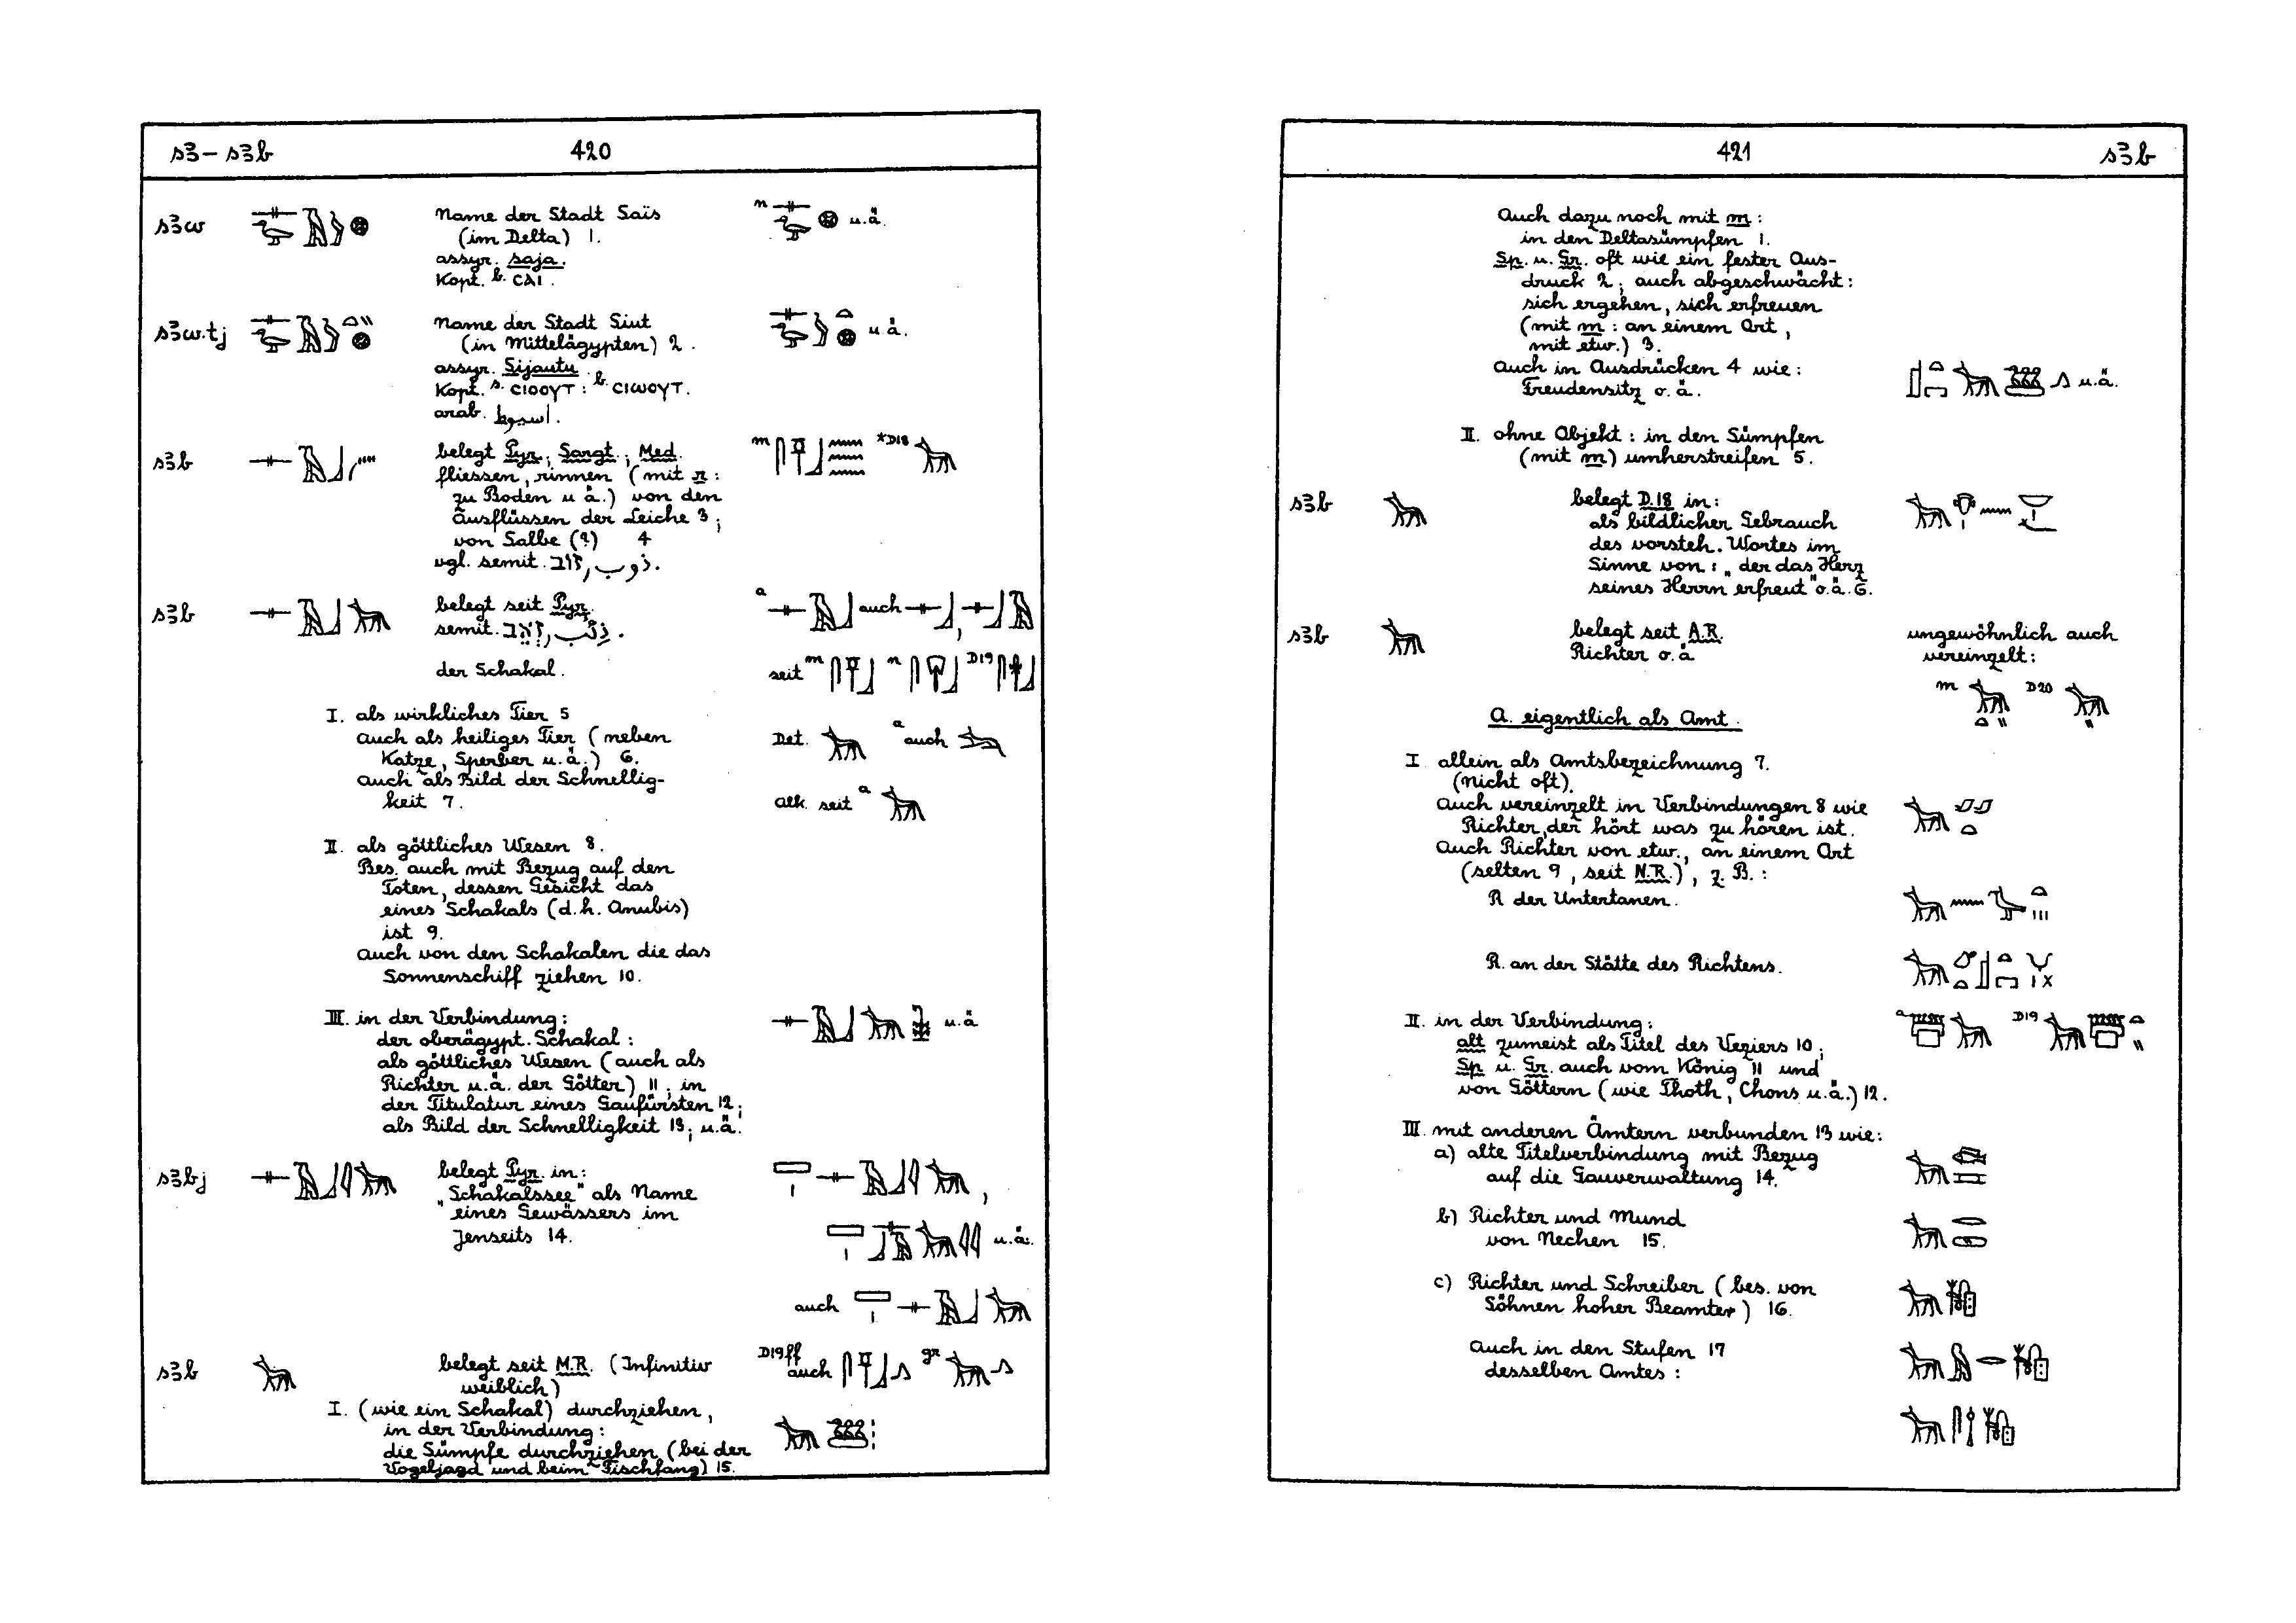 s3 – s3b 420
s3w
Name der Stadt Saïs
(im Delta) 1.
assyr. saja.
Kopt. b. ⲤⲀⲒ.
n u.ä.
s3w.tj
Name der Stadt Siut
(in Mittelägypten) 2.
assyr. Sijautu
Kopt. s. ⲤⲒⲞⲞⲨⲦ : b. ⲤⲒⲰⲞⲨⲦ.
arab. اسيوط.
u.ä.
s3b
belegt Pyr., Sargt., Med.
fliessen, rinnen (mit r:
zu Boden u.ä.) von den
Ausflüssen der Leiche 3;
von Salbe (?) 4
vgl. semit. זוב, ذوب.
m *D18
s3b
belegt seit Pyr.
semit. זְאֵב, ذِئْب.
der Schakal.
a auch ,
seit m n D19
I. als wirkliches Tier 5
Auch als heiliges Tier (neben
Katze, Sperber u.ä.) 6.
Auch als Bild der Schnellig-
keit 7.
Det. a auch
Abk. seit a
II. als göttliches Wesen 8.
Bes. auch mit Bezug auf den
Toten, dessen Gesicht das
eines Schakals (d.h. Anubis)
ist 9.
Auch von den Schakalen die das
Sonnenschiff ziehen 10.
III. in der Verbindung:
der oberägypt. Schakal:
als göttliches Wesen (auch als
Richter u.ä. der Götter) 11; in
der Titulatur eines Gaufürsten 12;
als Bild der Schnelligkeit 13; u.ä.
u.ä
s3bj
belegt Pyr. in:
„Schakalssee" als Name
eines Gewässers im
Jenseits 14.
,
u.ä.
auch
s3b
belegt seit M.R. (Infinitiv
weiblich)
D19ff auch gr
I. (wie ein Schakal) durchziehen,
in der Verbindung:
die Sümpfe durchziehen (bei der
Vogeljagd und beim Fischfang) 15.
421 s3b
Auch dazu noch mit m:
in den Deltasümpfen 1.
Sp. u. Gr. oft wie ein fester Aus-
druck 2; auch abgeschwächt:
sich ergehen, sich erfreuen
(mit m: an einem Ort,
mit etw.) 3.
Auch in Ausdrücken 4 wie:
Freudensitz o.ä.
u.ä.
II. ohne Objekt: in den Sümpfen
(mit m) umherstreifen 5.
s3b
belegt D.18 in:
als bildlicher Gebrauch
des vorsteh. Wortes im
Sinne von: „der das Herz
seines Herrn erfreut" o.ä. 6.
s3b
belegt seit A.R.
Richter o.ä
ungewöhnlich auch
vereinzelt:
m D20
A. eigentlich als Amt.
I allein als Amtsbezeichnung 7.
(nicht oft).
Auch vereinzelt in Verbindungen 8 wie
Richter, der hört was zu hören ist.
Auch Richter von etw., an einem Ort
(selten 9, seit N.R.), z. B.:
R der Untertanen.
R. an der Stätte des Richtens.
II. in der Verbindung:
alt zumeist als Titel des Veziers 10;
Sp u. Gr. auch vom König 11 und
von Göttern (wie Thoth, Chons u.ä.) 12.
a D19
III. mit anderen Ämtern verbunden 13 wie:
a) alte Titelverbindung mit Bezug
auf die Gauverwaltung 14.
b) Richter und Mund
von Nechen 15.
c) Richter und Schreiber (bes. von
Söhnen hoher Beamter) 16.
Auch in den Stufen 17
desselben Amtes: